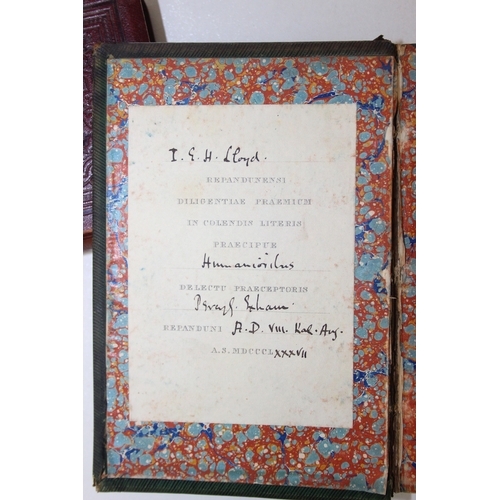 I. E. H. Lloyd.
REPANDUNENSI
DILIGENTIAE PRAEMIUM
IN COLENDIS LITERIS
PRAECIPUE
Humanioribus
DELECTU PRAECEPTORIS
REPANDUNI A.D. VIII. Kal. Aug.
A.S. MDCCCLXXXVII